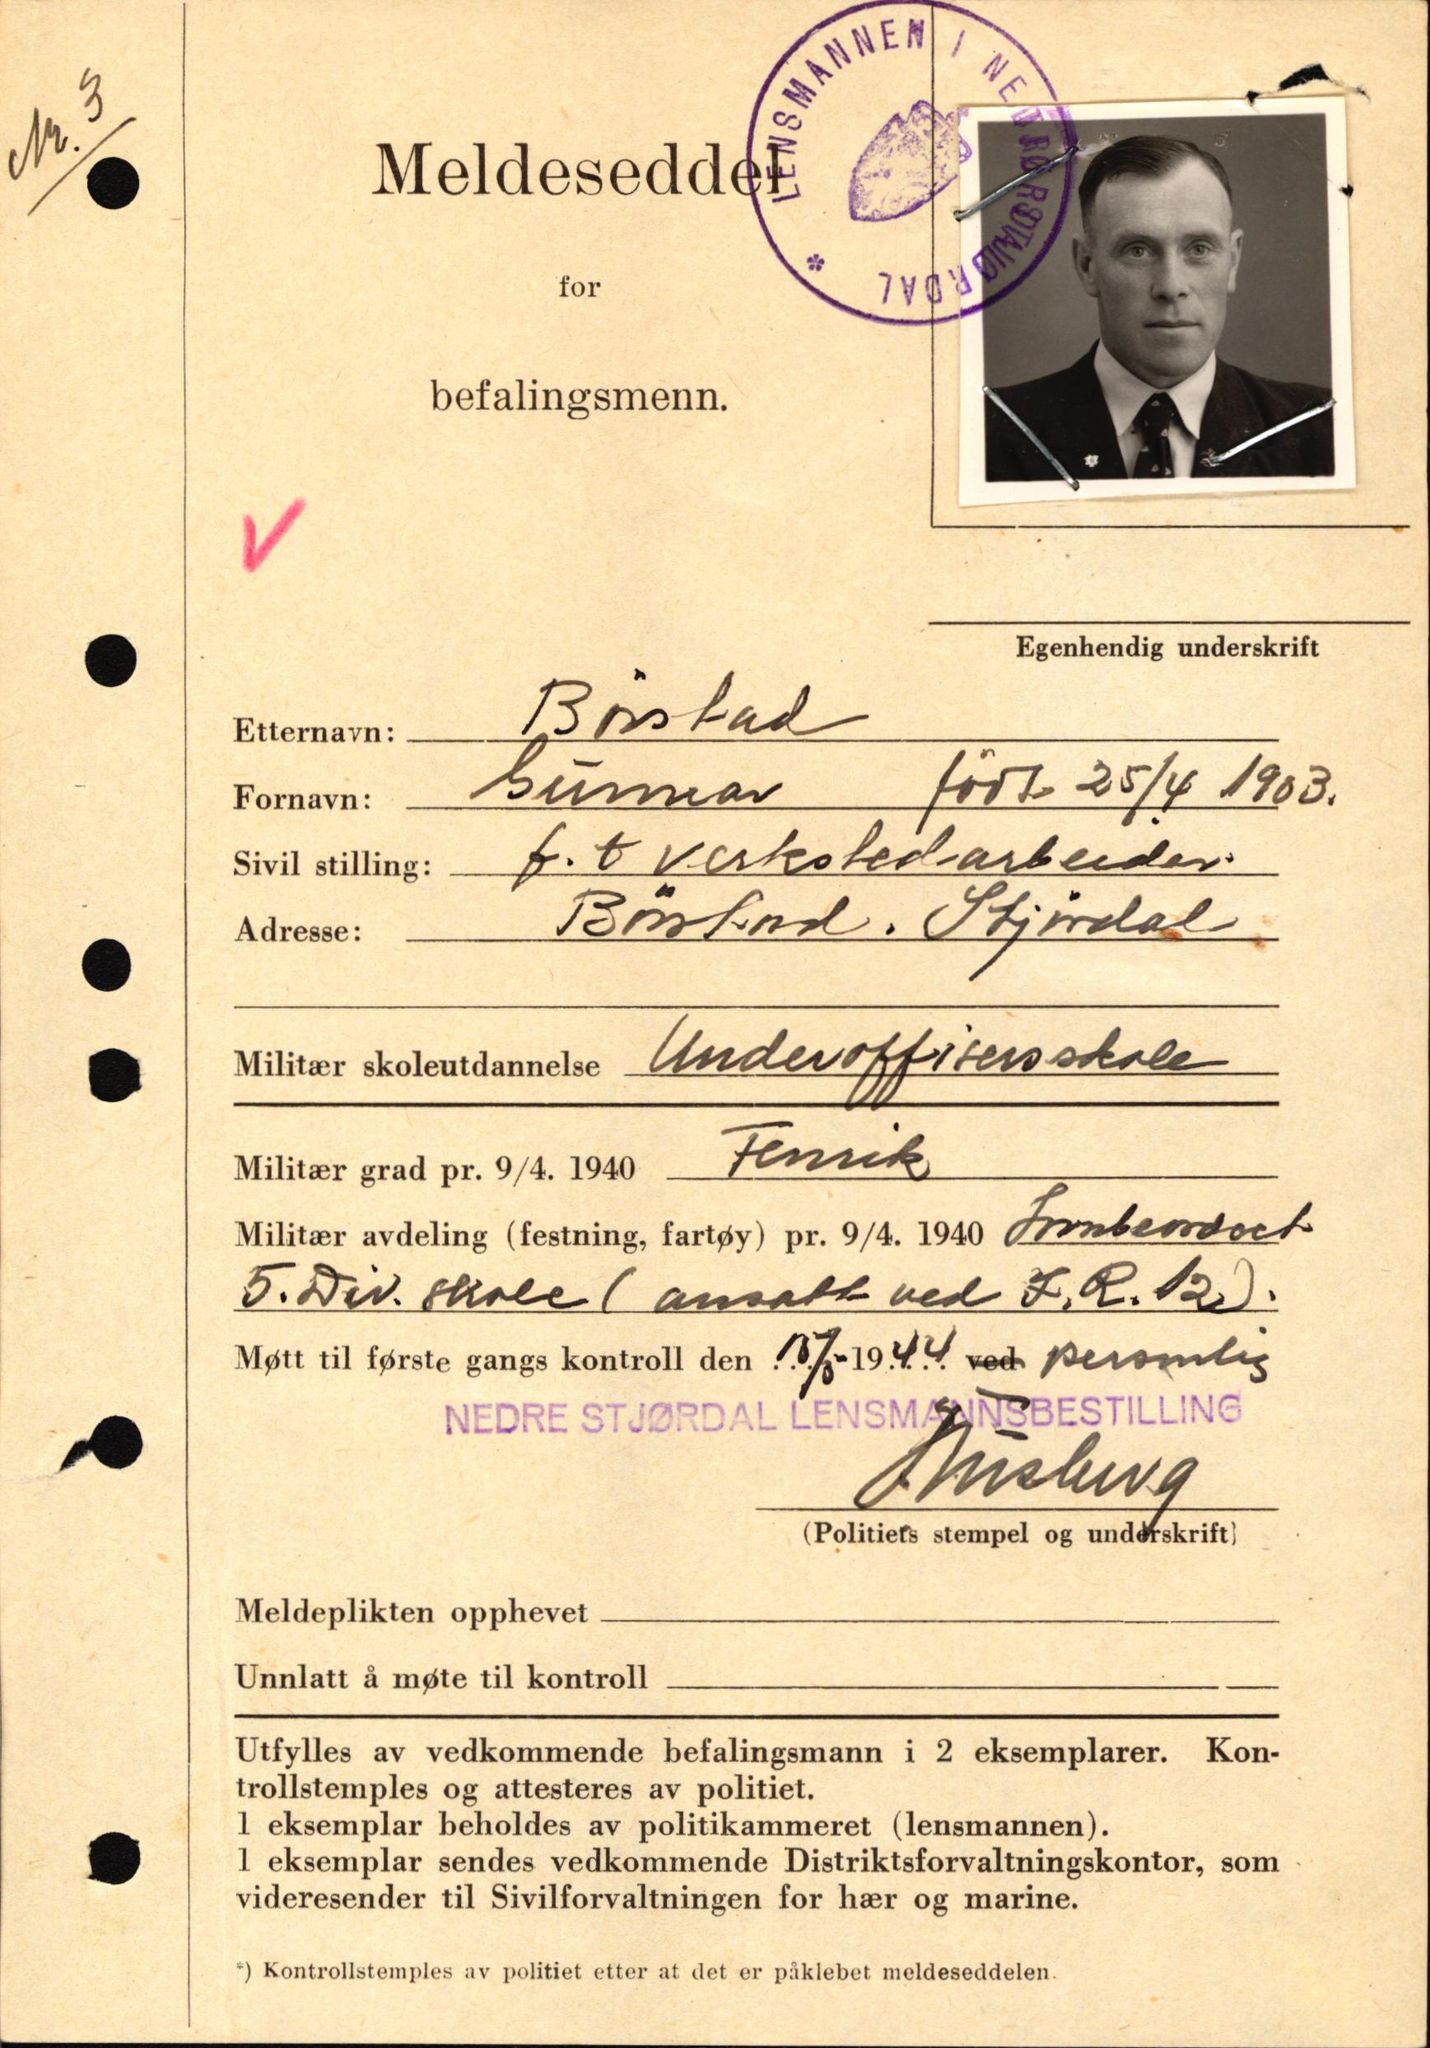 Nr. 3
LENSMANNEN I NEDRE STJØRDAL *
Meldeseddel
for
befalingsmenn.
Egenhendig underskrift
Etternavn: Börstad
Fornavn: Gunnar född 25/4 1903.
Sivil stilling: f. t verkstedarbeider.
Adresse: Börstad. Stjördal
Militær skoleutdannelse Underoffisersskole
Militær grad pr. 9/4. 1940 Fenrik
Militær avdeling (festning, fartøy) pr. 9/4. 1940
5. Div. skole (ansatt ved I. R. 12).
Møtt til første gangs kontroll den 1944 ved personlig
NEDRE STJØRDAL LENSMANNSBESTILLING
(Politiets stempel og underskrift)
Meldeplikten opphevet
Unnlatt å møte til kontroll
Utfylles av vedkommende befalingsmann i 2 eksemplarer. Kon-
trollstemples og attesteres av politiet.
1 eksemplar beholdes av politikammeret (lensmannen).
1 eksemplar sendes vedkommende Distriktsforvaltningskontor, som
videresender til Sivilforvaltningen for hær og marine.
*) Kontrollstemples av politiet etter at det er påklebet meldeseddelen.